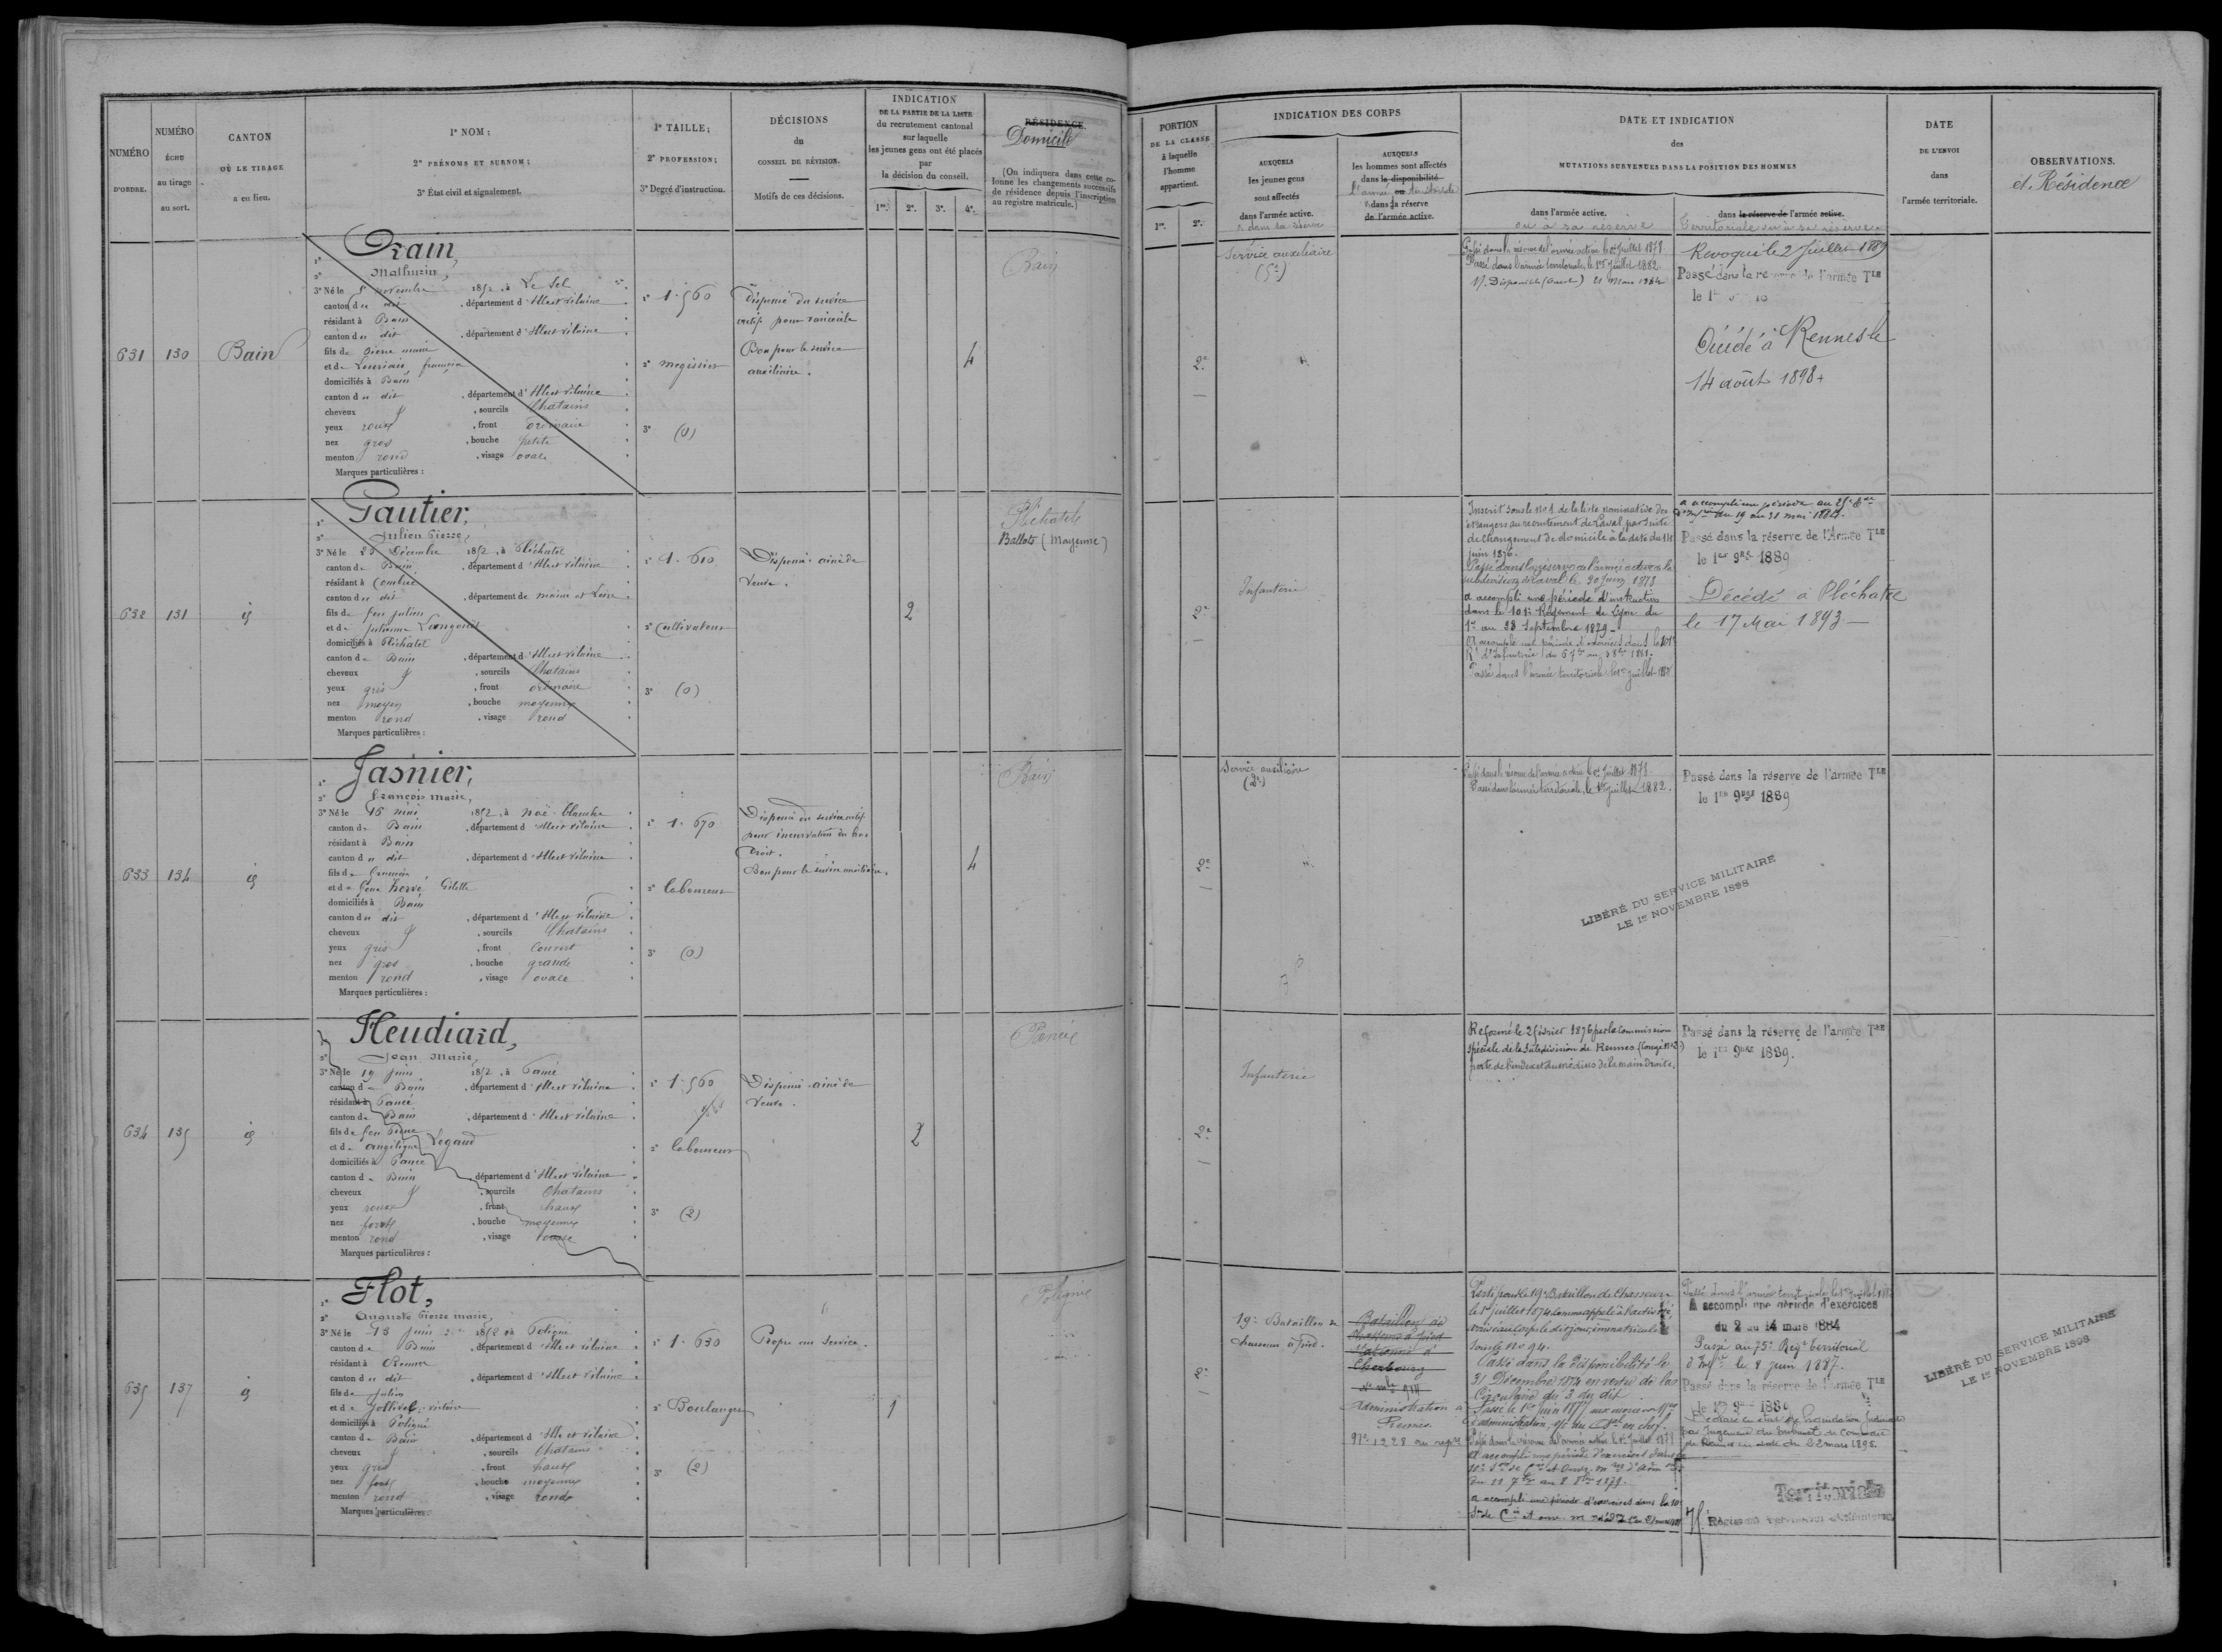 NUMÉRO
D'ORDRE.
NUMÉRO
ÉCHU
au tirage
au sort.
CANTON
OÙ LE TIRAGE
a eu lieu.
1° NOM;
2° PRÉNOMS ET SURNOM;
3° État civil et signalement.
1° TAILLE;
2° PROFESSION;
3° Degré d'instruction.
DÉCISIONS
du
CONSEIL DE RÉVISION.
Motifs de ces décisions.
INDICATION
DE LA PARTIE DE LA LISTE
du recrutement cantonal
sur laquelle
les jeunes gens ont été placés
par
la décision du conseil.
1re. 2e. 3e. 4e.
RÉSIDENCE.
Domicile
(On indiquera dans cette co-
lonne les changements successifs
de résidence depuis l'inscription
au registre matricule.)
PORTION
DE LA CLASSE
à laquelle
l'homme
appartient.
1re. 2e.
INDICATION DES CORPS
AUXQUELS
les jeunes gens
sont affectés
dans l'armée active.
AUXQUELS
les hommes sont affectés
dans la disponibilité
dans la réserve
de l'armée active.
DATE ET INDICATION
des
MUTATIONS SURVENUES DANS LA POSITION DES HOMMES
dans l'armée active.
ou à sa réserve
dans la réserve de l'armée active.
territoriale ou à sa réserve
DATE
DE L'ENVOI
dans
l'armée territoriale.
OBSERVATIONS.
et Résidence
631 130 Bain
1°
2° Mathurin,
3° Né le novembre 1852, à Le Sel
canton du dit, département d'Ille et Vilaine
résidant à Bain
canton du dit, département d'Ille et Vilaine
fils de Pierre marie
et de
domiciliés à Bain
canton du dit, département d'Ille et Vilaine
cheveux, sourcils Chatains
yeux roux, front ordinaire
nez gros, bouche petite
menton rond, visage ovale
Marques particulières :
1° 1.560
2° megissier
3° (0)
Dispensé du service
actif pour varicocèle
Bon pour le service
auxiliaire.
4
Bain
2e
Service auxiliaire
Passé dans la réserve de l'armée active le 1er Juillet 1878.
Passé dans l'armée territoriale, le 1er Juillet 1882
Révoqué le 2 Juillet 1889
Passé dans la réserve de l'armée Tle
Décédé à Rennes le
14 août 1898
632 131 id
Gautier,
2° Julien Pierre,
3° Né le 25 Décembre 1852, à Pléchatel
canton de Bain, département d'Ille et Vilaine
résidant à Combrée
canton du dit, département de maine et Loire
fils de feu julien
et de julienne
domiciliés à Pléchatel
canton de Bain, département d'Ille et Vilaine
cheveux, sourcils Chatains
yeux gris, front ordinaire
nez moyen, bouche moyenne
menton rond, visage rond
Marques particulières :
1° 1.610
2° Cultivateur
3° (0)
Dispensé: ainé de
Veuve.
2
Pléchatel
Ballots (Mayenne)
2e
Infanterie
Inscrit sous le no 1 de la liste nominative des
étrangers au recrutement de Laval, par suite
de changement de domicile à la date du
juin 1876.
Passé dans la réserve de l'armée active de la
subdivision de Laval le 30 juin 1878
a accompli une période d'instruction
dans le 101e Régiment de Ligne du
1er au 28 Septembre 1879
Passé dans l'armée territoriale le 1er juillet
a accompli une période au 25e
du 19 au 31 mai 1884.
Passé dans la réserve de l'Armée Tle
le 1er 9bre 1889
Décédé à Pléchatel
le 17 Mai 1893
633 134 id
Jasnier,
2° François marie,
3° Né le 16 mai 1852, à Noë-blanche
canton de Bain, département d'Ille et Vilaine
résidant à Bain
canton du dit, département d'Ille et Vilaine
fils de François,
et de feue hervé
domiciliés à Bain
canton du dit, département d'Ille et Vilaine
cheveux, sourcils Chatains
yeux gris, front Couvert
nez gros, bouche grande
menton rond, visage ovale
Marques particulières :
1° 1.670
2° laboureur
3° (0)
Dispensé du service actif
pour incurvation du bras
droit.
Bon pour le service auxiliaire.
4
Bain
2e
Service auxiliaire
Passé dans la réserve de l'armée active le 1er Juillet 1878
Passé dans l'armée territoriale, le 1er Juillet 1882.
Passé dans la réserve de l'armée Tle
le 1er 9bre 1889
LIBÉRÉ DU SERVICE MILITAIRE
LE 1er NOVEMBRE 1898
634 135 id
Heudiard,
2° Jean Marie,
3° Né le 19 juin 1852, à Pancé
canton de Bain, département d'Ille et Vilaine
résidant à Pancé
canton de Bain, département d'Ille et Vilaine
fils de feu Pierre
et de angélique Legaud
domiciliés à Pancé
canton de Bain, département d'Ille et Vilaine
cheveux, sourcils Chatains
yeux roux, front haut
nez fort, bouche moyenne
menton rond, visage ovale
Marques particulières :
1° 1.560
2° laboureur
3° (2)
Dispensé: ainé de
Veuve.
2
Pancé
2e
Infanterie
Réformé le 2 février 1876 par la Commission
spéciale de la Subdivision de Rennes (Congé No 2)
perte de l'index et du médius de la main Droite.
Passé dans la réserve de l'armée Tle
le 1er 9bre 1889.
635 137 id
Flot,
2° Auguste Pierre marie,
3° Né le 13 juin 1852, à Poligné
canton de Bain, département d'Ille et Vilaine
résidant à Rennes
canton du dit, département d'Ille et Vilaine
fils de Julien
et de Jollivel victoire
domiciliés à Poligné
canton de Bain, département d'Ille et Vilaine
cheveux, sourcils Chatains
yeux gris, front haut
nez fort, bouche moyenne
menton rond, visage rond
Marques particulières :
1° 1.630
2° Boulanger
3° (2)
Propre au Service.
1
Poligné
2e
19e Bataillon de
chasseurs à pied.
Bataillon de
Chasseurs à pied
Cherbourg
Administration à
Rennes.
No 1228 au
Parti pour le 19e Bataillon de Chasseurs
le 1er juillet 1874 comme appelé à l'activité,
arrivé au Corps le dit jour, immatriculé
sous le No 94.
Passé dans la Disponibilité le
31 Décembre 1874 en vertu de la
Circulaire du 3 du dit.
du 11 7bre au 8 8bre 1879.
a accompli une période d'exercices dans la 10
Passé dans l'armée territoriale le 1er Juillet
A accompli une période d'exercices
du 2 au 14 mars 1884
Passé au 75e Régt territorial
d'Inf le 8 juin 1887.
Passé dans la réserve de l'armée Tle
Déclaré en état de liquidation judiciaire
par Jugement du tribunal de Commerce
de Rennes en date du 22 mars 1898.
Territoriale
LIBÉRÉ DU SERVICE MILITAIRE
LE 1er NOVEMBRE 1898